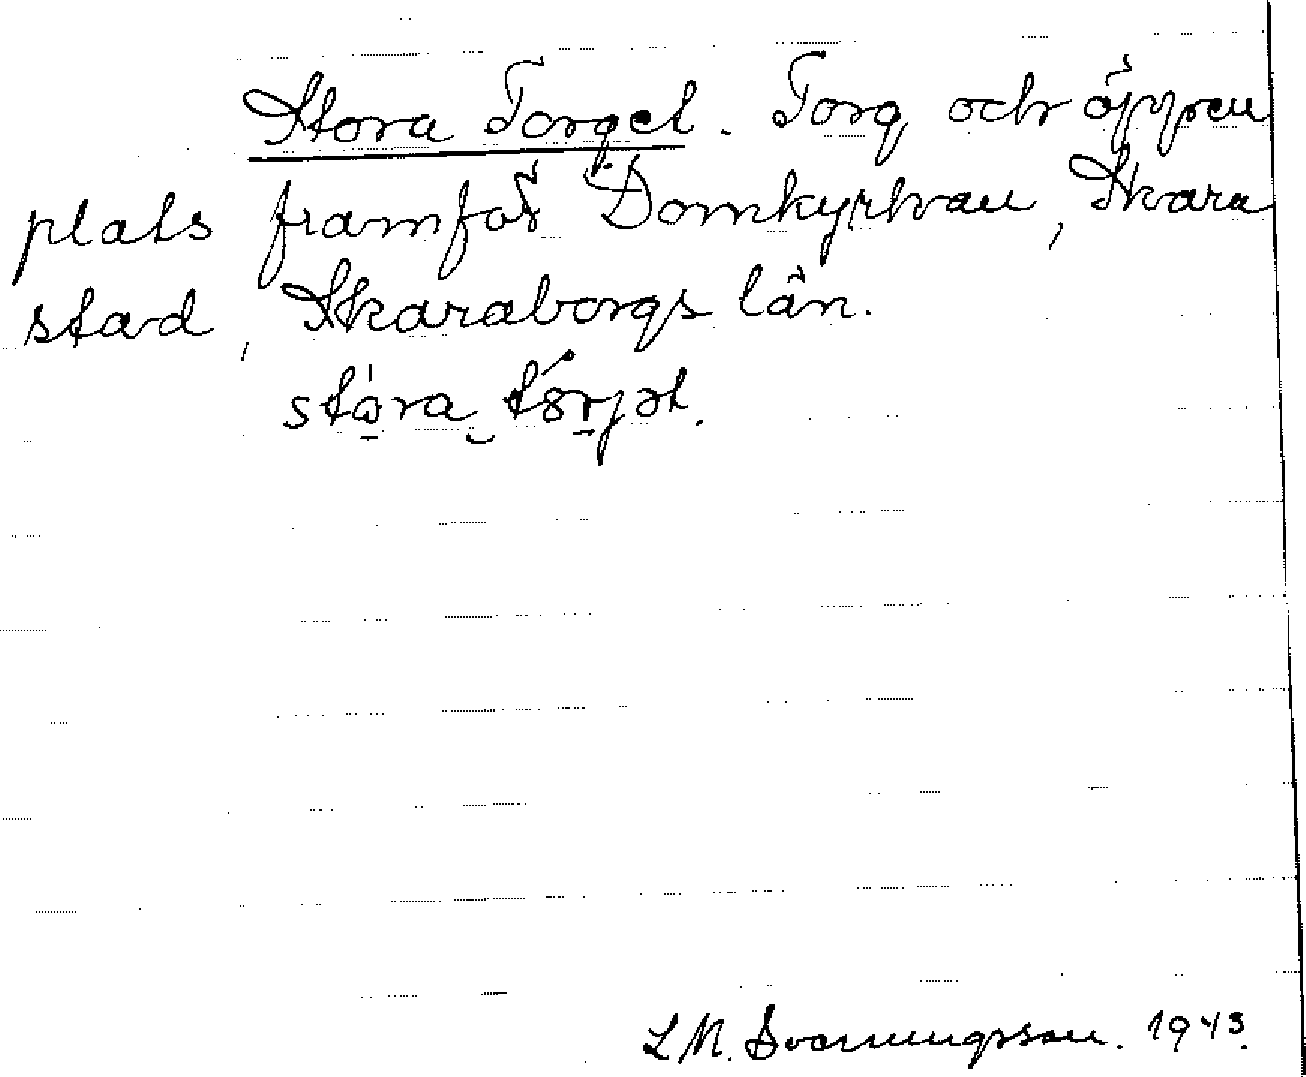 Stora Torget. Torg och öppen
plats framför Domkyrkan, Skara
stad, Skaraborgs län.
stora torjət.
L M. Svanungsson. 1943.